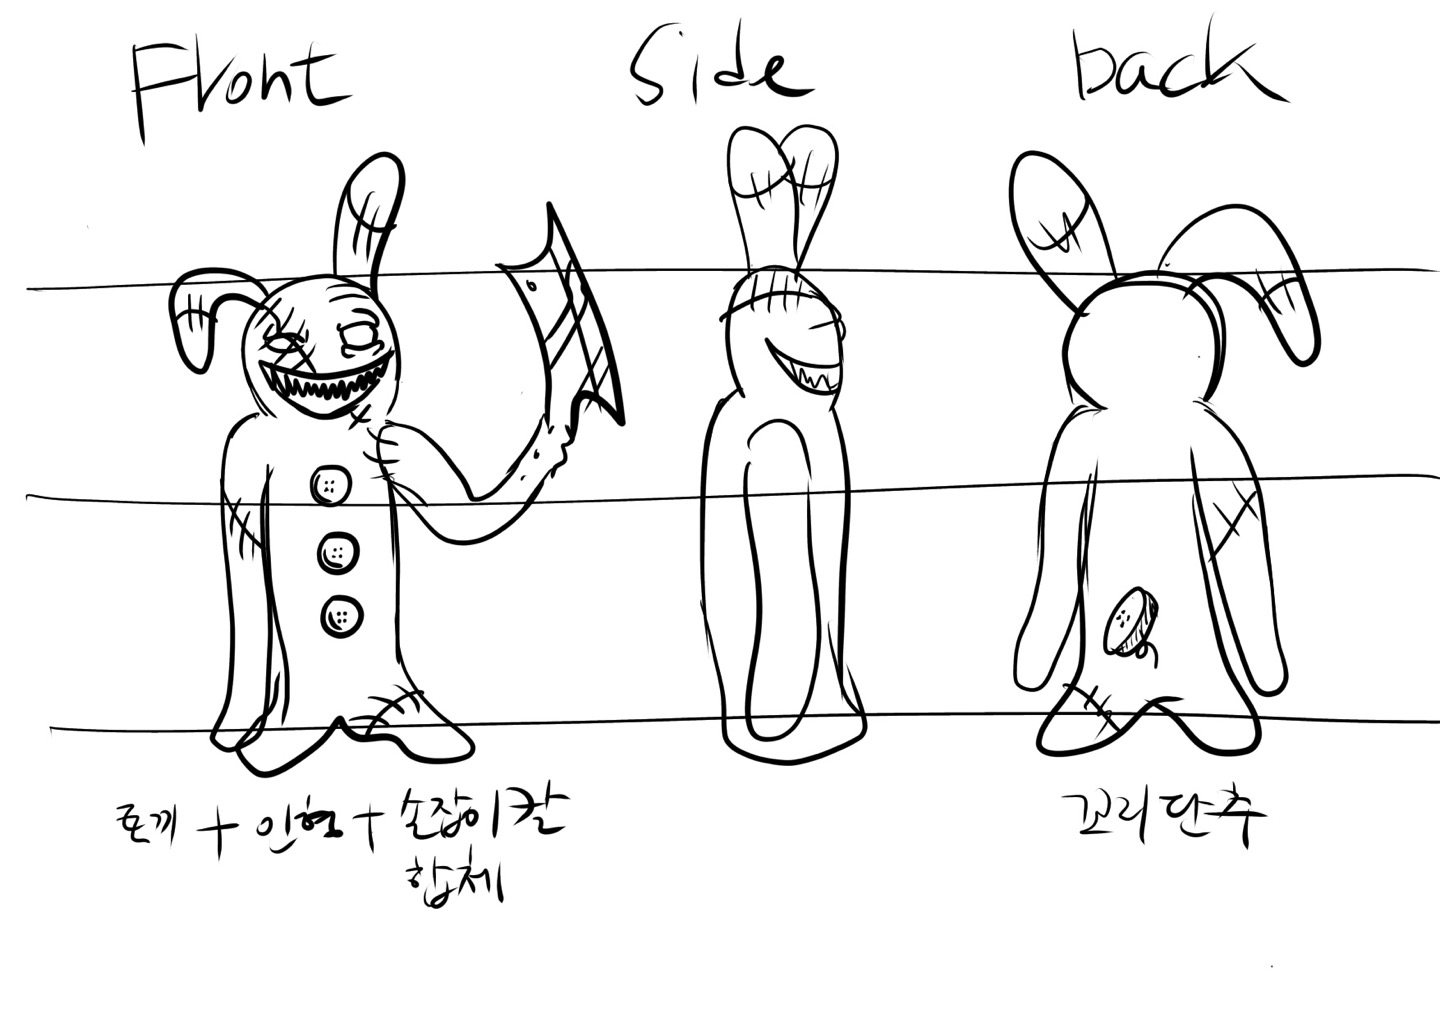 Front
Side
back
토끼 + 인형 + 손잡이칼
합체
꼬리 단추